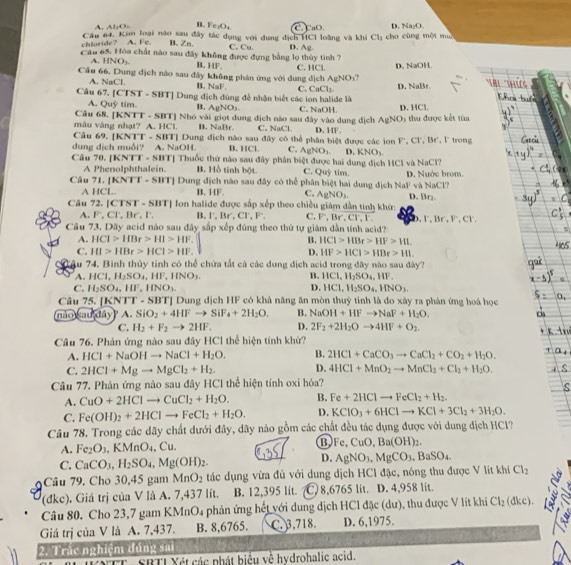 A. Al₂O₃. B. Fe₃O₄. C. CaO. D. Na₂O.
Câu 64. Kim loại nào sau đây tác dụng với dung dịch HCl loãng và khí Cl₂ cho cùng một mu
chloride? A. Fe. B. Zn. C. Cu. D. Ag.
Câu 65. Hóa chất nào sau đây không được đựng bằng lọ thủy tinh ?
A. HNO₃. B. HF. C. HCl. D. NaOH.
Câu 66. Dung dịch nào sau đây không phản ứng với dung dịch AgNO₃?
A. NaCl. B. NaF. C. CaCl₂. D. NaBr.
Câu 67. [CTST - SBT] Dung dịch dùng để nhận biết các ion halide là
A. Quỳ tím. B. AgNO₃. C. NaOH. D. HCl.
Câu 68. [KNTT - SBT] Nhỏ vài giọt dung dịch nào sau đây vào dung dịch AgNO₃ thu được kết tủa
màu vàng nhạt? A. HCl. B. NaBr. C. NaCl. D. HF.
Câu 69. [KNTT - SBT] Dung dịch nào sau đây có thể phân biệt được các ion F⁻, Cl⁻, Br⁻, I⁻ trong
dung dịch muối? A. NaOH. B. HCl. C. AgNO₃. D. KNO₃.
Câu 70. [KNTT - SBT] Thuốc thử nào sau đây phân biệt được hai dung dịch HCl và NaCl?
A Phenolphthalein. B. Hồ tinh bột. C. Quỳ tím. D. Nước brom.
Câu 71. [KNTT - SBT] Dung dịch nào sau đây có thể phân biệt hai dung dịch NaF và NaCl?
A HCL. B. HF. C. AgNO₃. D. Br₂.
Câu 72. [CTST - SBT] Ion halide được sắp xếp theo chiều giảm dần tính khử:
A. F⁻, Cl⁻, Br⁻, I⁻. B. I⁻, Br⁻, Cl⁻, F⁻. C. F⁻, Br⁻, Cl⁻, I⁻. D. I⁻, Br⁻, F⁻, Cl⁻.
Câu 73. Dãy acid nào sau đây sắp xếp đúng theo thứ tự giảm dần tính acid?
A. HCl > HBr > HI > HF. B. HCl > HBr > HF > HI.
C. HI > HBr > HCl > HF. D. HF > HCl > HBr > HI.
Câu 74. Bình thủy tinh có thể chứa tất cả các dung dịch acid trong dãy nào sau đây?
A. HCl, H₂SO₄, HF, HNO₃. B. HCl, H₂SO₄, HF.
C. H₂SO₄, HF, HNO₃. D. HCl, H₂SO₄, HNO₃.
Câu 75. [KNTT - SBT] Dung dịch HF có khả năng ăn mòn thuỷ tinh là do xảy ra phản ứng hoá học
nào sau đây? A. SiO₂ + 4HF → SiF₄ + 2H₂O. B. NaOH + HF → NaF + H₂O.
C. H₂ + F₂ → 2HF. D. 2F₂ + 2H₂O → 4HF + O₂.
Câu 76. Phản ứng nào sau đây HCl thể hiện tính khử?
A. HCl + NaOH → NaCl + H₂O. B. 2HCl + CaCO₃ → CaCl₂ + CO₂ + H₂O.
C. 2HCl + Mg → MgCl₂ + H₂. D. 4HCl + MnO₂ → MnCl₂ + Cl₂ + H₂O.
Câu 77. Phản ứng nào sau đây HCl thể hiện tính oxi hóa?
A. CuO + 2HCl → CuCl₂ + H₂O. B. Fe + 2HCl → FeCl₂ + H₂.
C. Fe(OH)₂ + 2HCl → FeCl₂ + H₂O. D. KClO₃ + 6HCl → KCl + 3Cl₂ + 3H₂O.
Câu 78. Trong các dãy chất dưới đây, dãy nào gồm các chất đều tác dụng được với dung dịch HCl?
A. Fe₂O₃, KMnO₄, Cu. B. Fe, CuO, Ba(OH)₂.
C. CaCO₃, H₂SO₄, Mg(OH)₂. D. AgNO₃, MgCO₃, BaSO₄.
Câu 79. Cho 30,45 gam MnO₂ tác dụng vừa đủ với dung dịch HCl đặc, nóng thu được V lít khí Cl₂
(đkc). Giá trị của V là A. 7,437 lít. B. 12,395 lít. C 8,6765 lít. D. 4,958 lít.
Câu 80. Cho 23,7 gam KMnO₄ phản ứng hết với dung dịch HCl đặc (dư), thu được V lít khí Cl₂ (đkc).
Giá trị của V là A. 7,437. B. 8,6765. C. 3,718. D. 6,1975.
2. Trắc nghiệm đúng sai
SBT] Xét các phát biểu về hydrohalic acid.